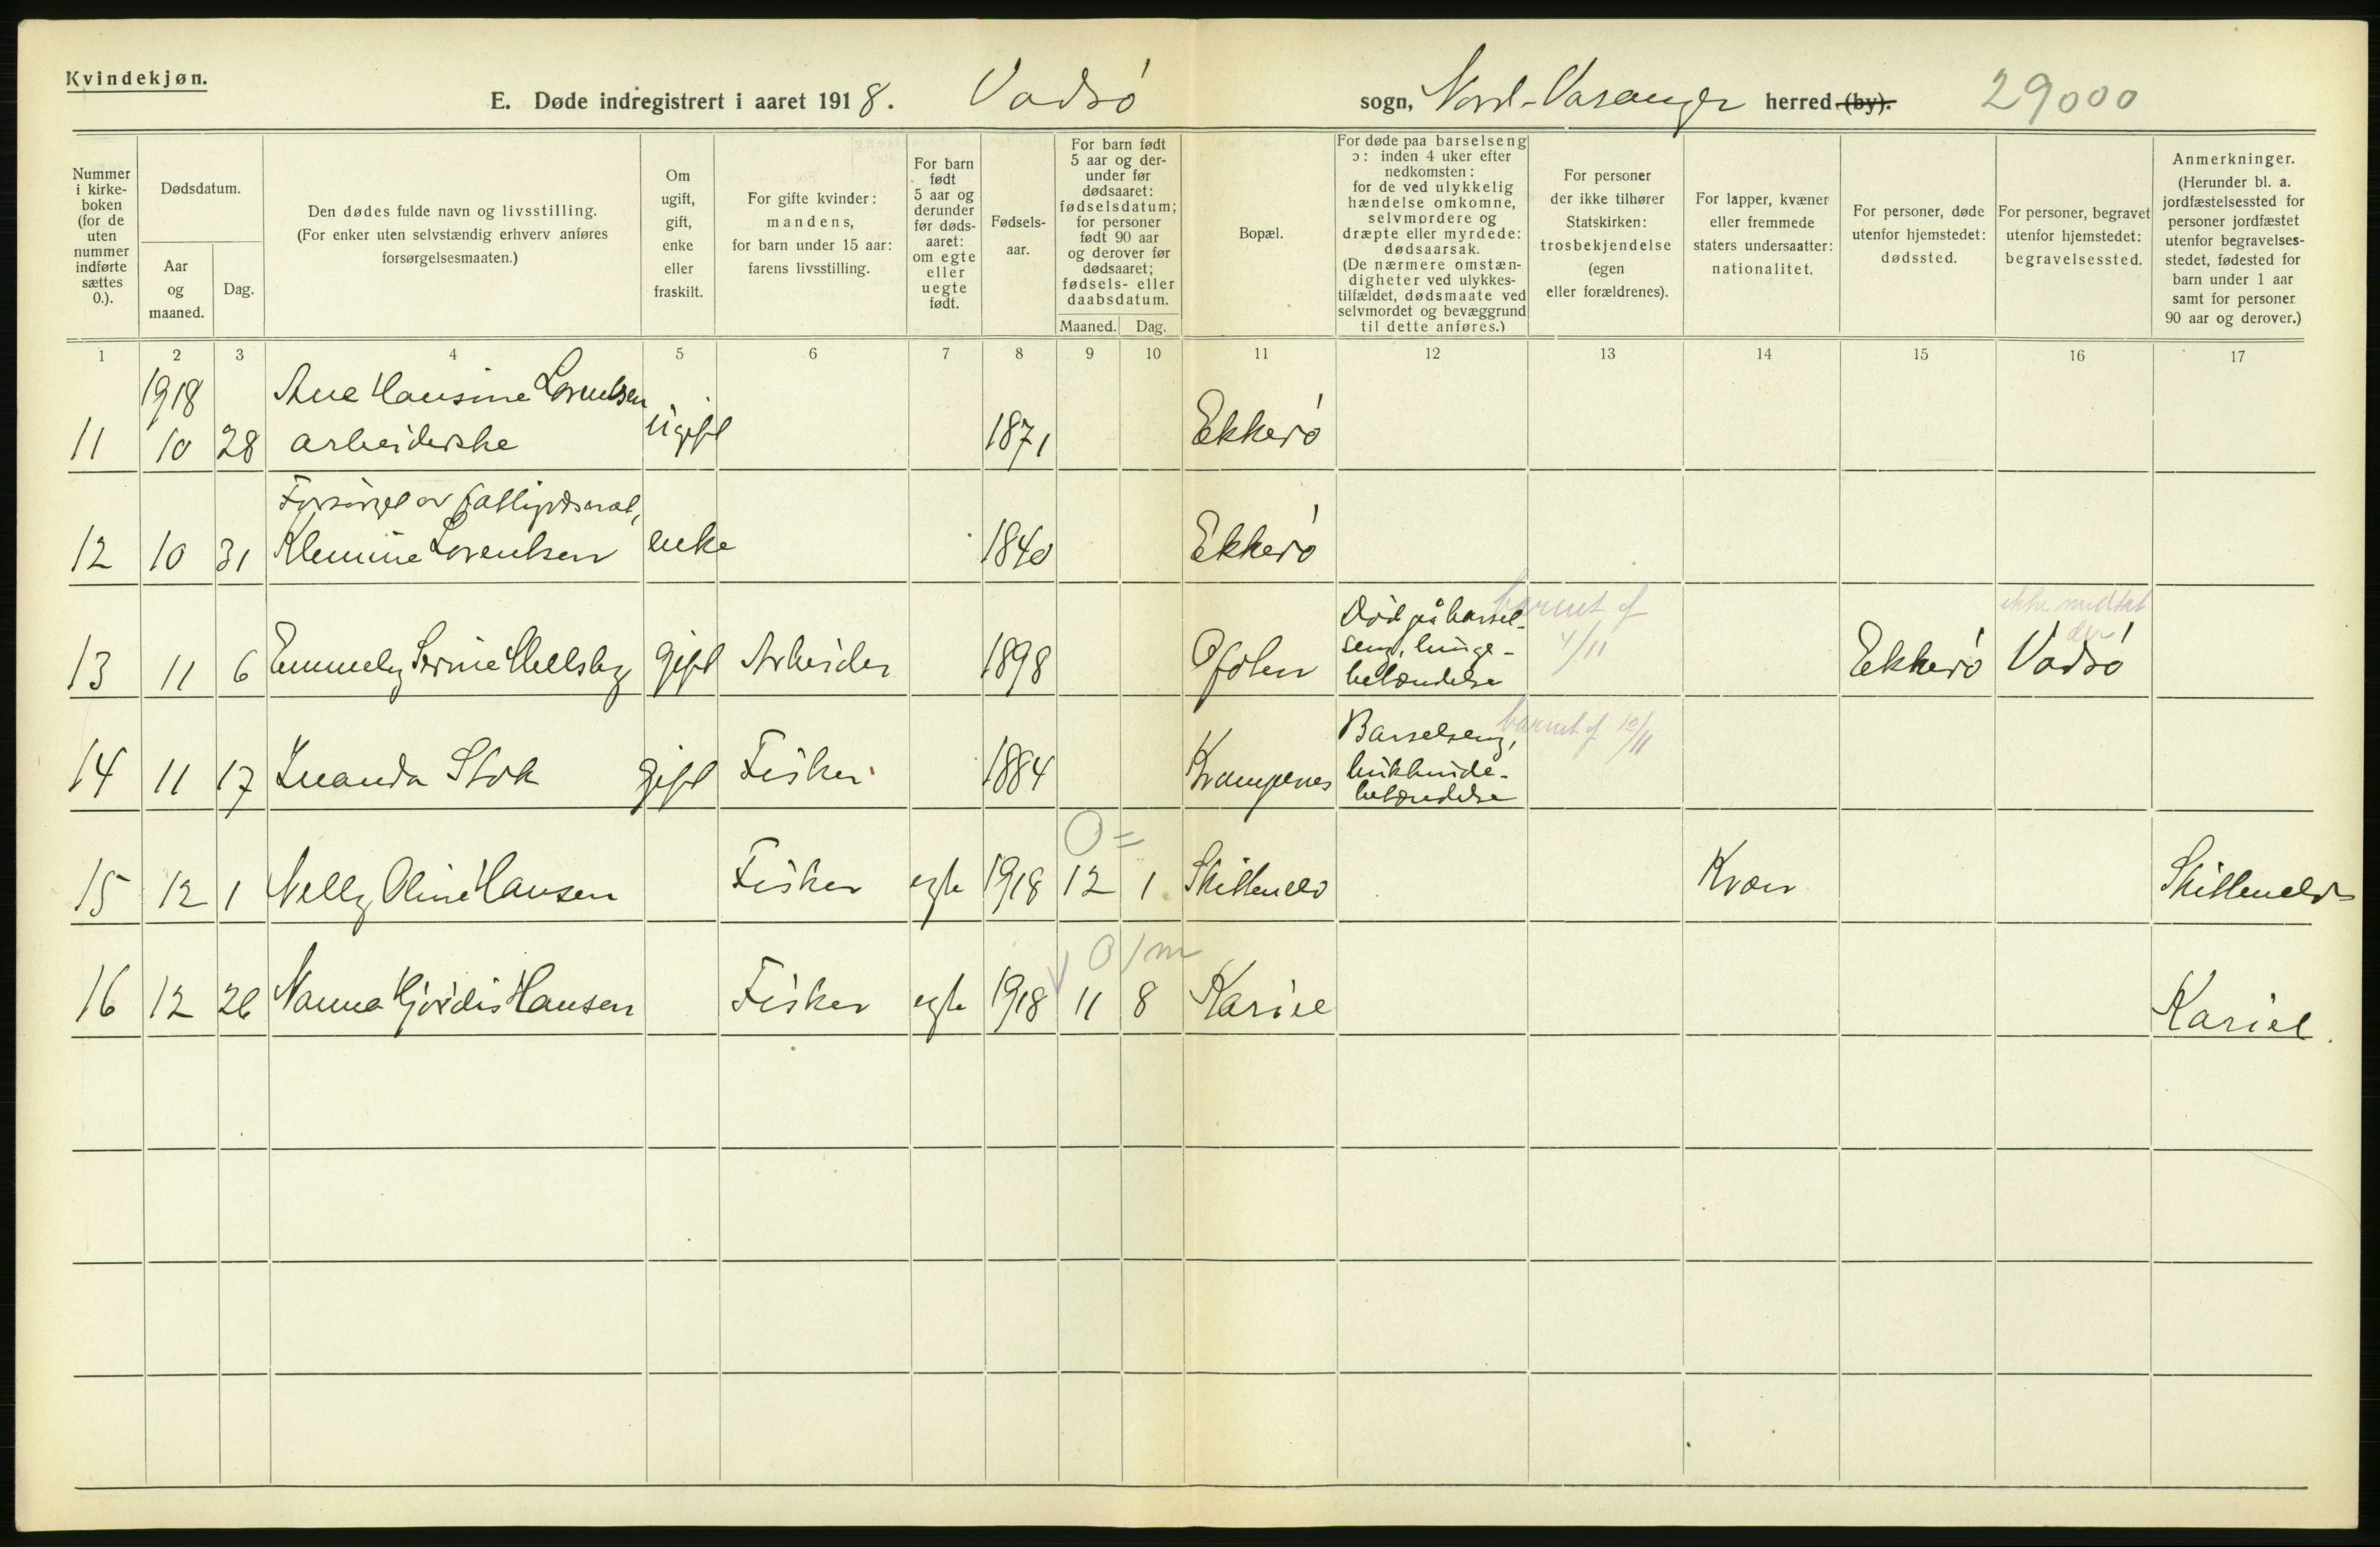 Kvindekjøn.
E. Døde indregistrert i aaret 1918. Vadsø sogn, Nord-Varanger herred (by). 29000
Nummer i kirke-boken (for de uten nummer indførte sættes 0.).
Dødsdatum.
Aar og maaned.
Dag.
Den dødes fulde navn og livsstilling.
(For enker uten selvstændig erhverv anføres
forsørgelsesmaaten.)
Om ugift, gift, enke eller fraskilt.
For gifte kvinder:
mandens,
for barn under 15 aar:
farens livsstilling.
For barn født 5 aar og derunder før døds-aaret: om egte eller uegte født.
Fødsels-aar.
For barn født
5 aar og der-
under før
dødsaaret:
fødselsdatum;
for personer
født 90 aar
og derover før
dødsaaret;
fødsels- eller
daabsdatum.
Maaned. Dag.
Bopæl.
For døde paa barselseng
ɔ: inden 4 uker efter
nedkomsten:
for de ved ulykkelig
hændelse omkomne,
selvmordere og
dræpte eller myrdede:
dødsaarsak.
(De nærmere omstæn-
digheter ved ulykkes-
tilfældet, dødsmaate ved
selvmordet og bevæggrund
til dette anføres.)
For personer
der ikke tilhører
Statskirken:
trosbekjendelse
(egen
eller forældrenes).
For lapper, kvæner
eller fremmede
staters undersaatter:
nationalitet.
For personer, døde
utenfor hjemstedet:
dødssted.
For personer, begravet
utenfor hjemstedet:
begravelsessted.
Anmerkninger.
(Herunder bl. a.
jordfæstelsessted for
personer jordfæstet
utenfor begravelses-
stedet, fødested for
barn under 1 aar
samt for personer
90 aar og derover.)
1 2 3 4 5 6 7 8 9 10 11 12 13 14 15 16 17
1918 Ane Hansine Lorentsen
11 10 28 arbeiderske ugift 1871 Ekkerø
Forsørget av fattigvæsenet,
12 10 31 Klemine Lorentsen enke 1840 Ekkerø
Død på barsel- barnet f ikke medtat
seng, lunge- 4/11 der
13 11 6 Emmely Serine Mellsby gift Arbeider 1898 betændelse Ekkerø Vadsø
Barselseng, barnet f 12/11
14 11 17 Stok gift Fisker 1884 Krampenes bukhinde-
betændelse
0 =
15 12 1 Nelly Oline Hansen Fisker egte 1918 12 1 Skittenelv Kvæn Skittenelv
0 1 m
16 12 26 Nanna Hjørdis Hansen Fisker egte 1918 11 8 Kariel Kariel